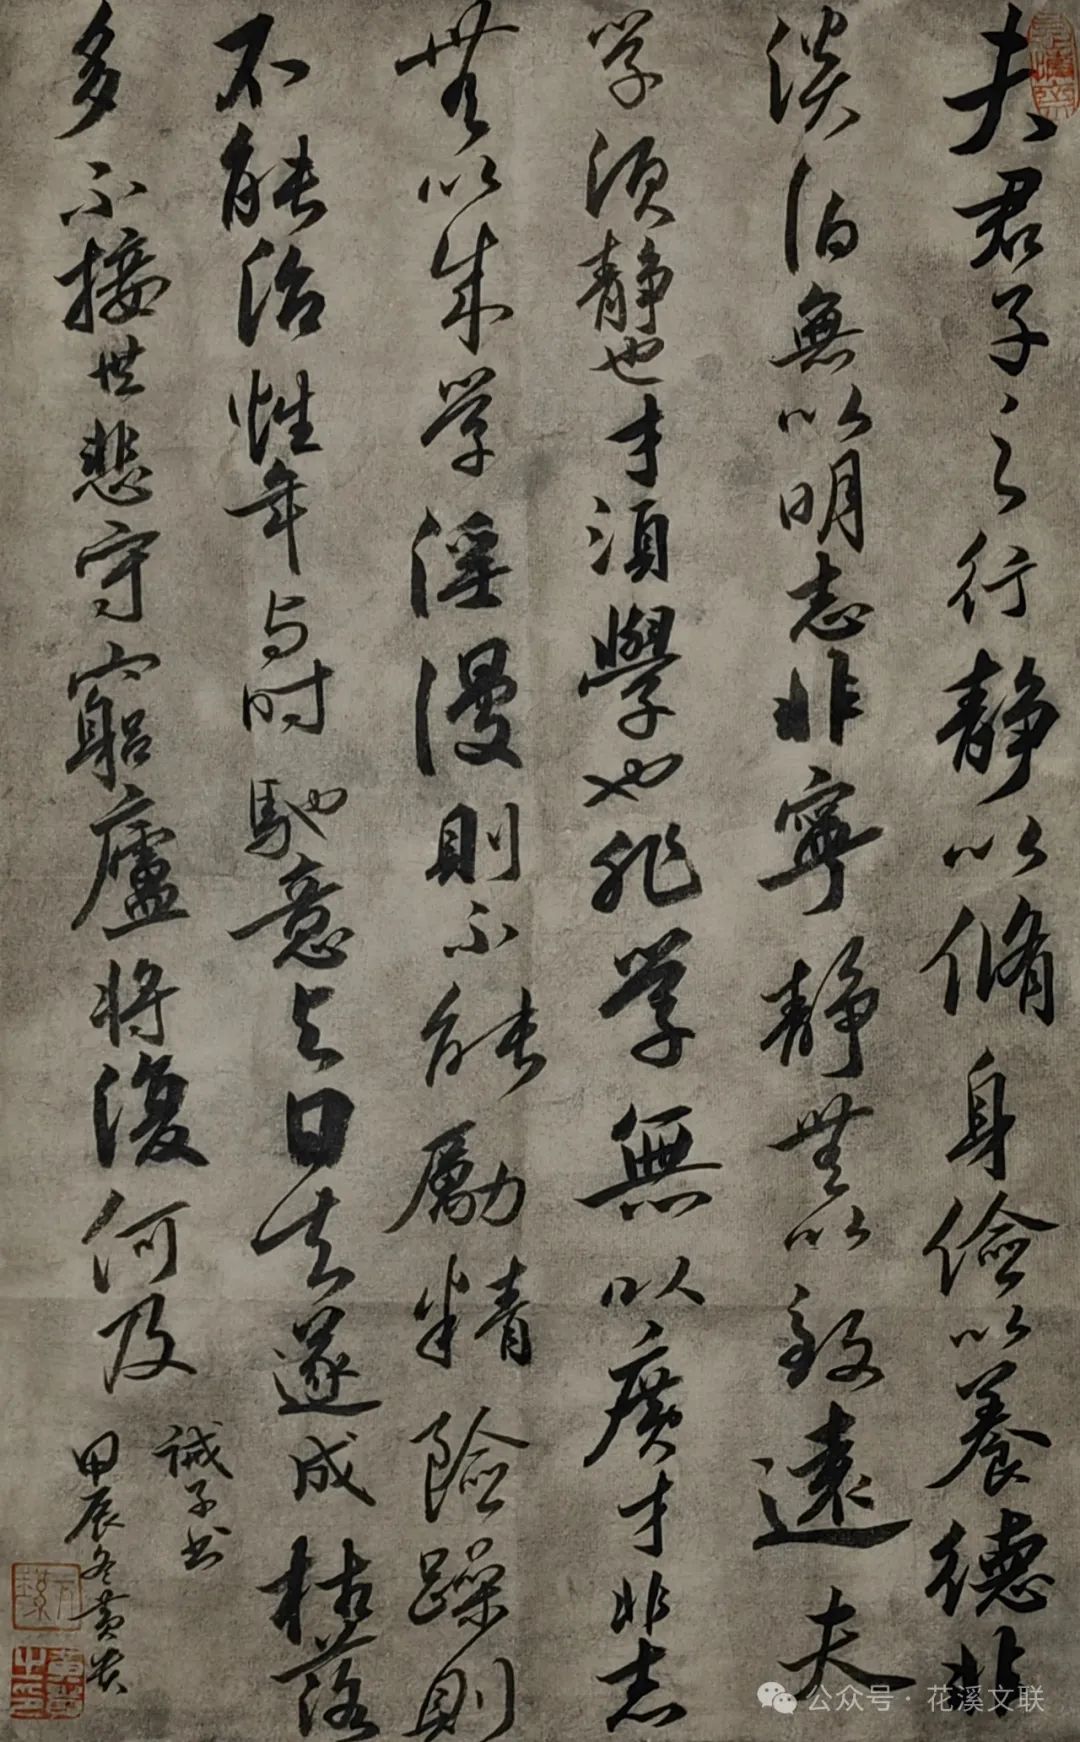 夫君子之行静以脩身儉以養德非
淡泊無以明志非寧静無以致遠夫
学須静也才須學也非学無以廣才非志
無以成学淫漫則不能勵精險躁則
不能治性年与时馳意与日去遂成枯落
多不接世悲守窮廬将復何及
誡子书
甲辰冬黄贵
公众号·花溪文联